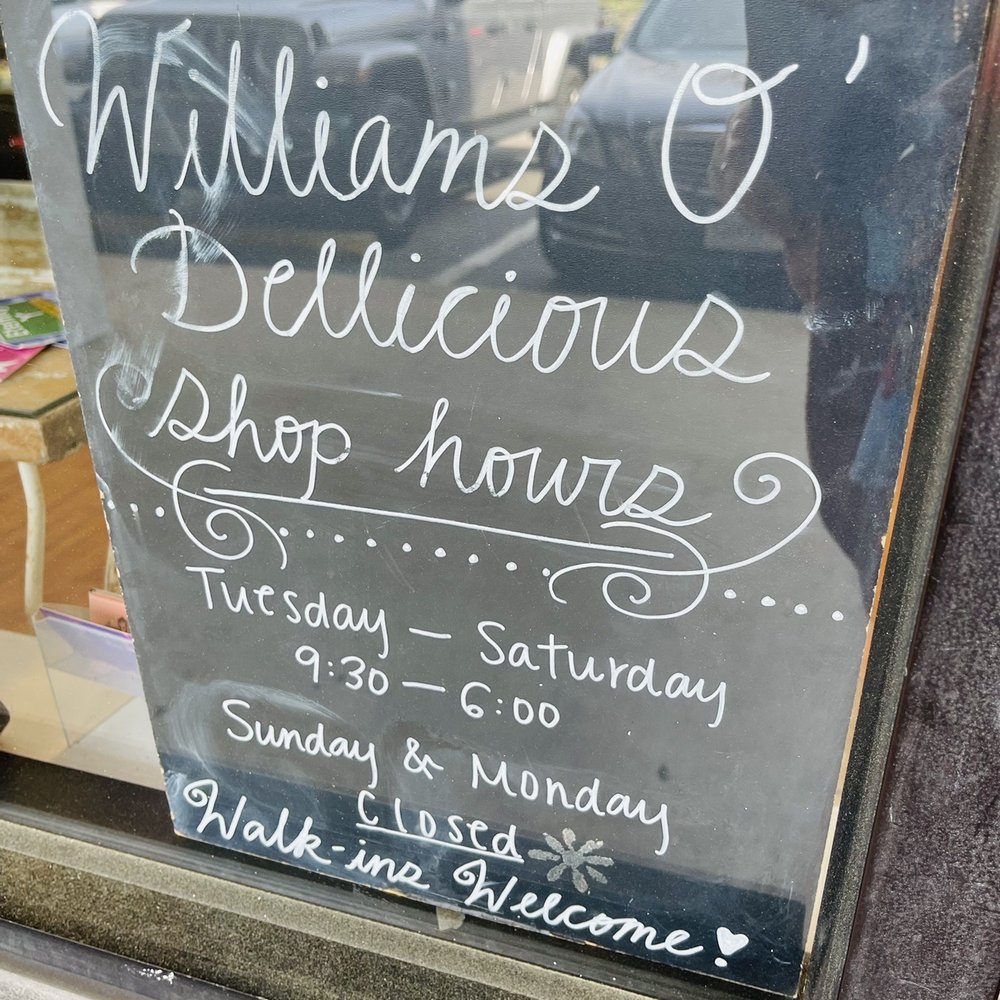 Williams O'
Dellicious
shop hours
Tuesday — Saturday
9:30 — 6:00
Sunday & Monday
Closed
Walk-ins Welcome!